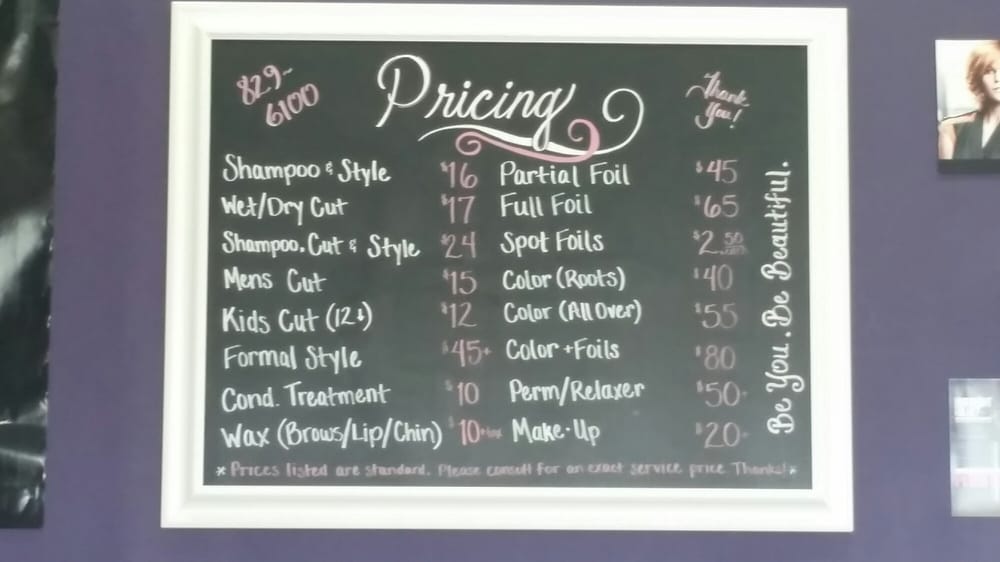 829-
6100
Pricing
Thank
You!
Shampoo & Style $16
Wet/Dry Cut $17
Shampoo, Cut & Style $24
Mens Cut $15
Kids Cut (12↓) $12
Formal Style $45+
Cond. Treatment $10
Wax (Brows/Lip/Chin) $10+
Partial Foil $45
Full Foil $65
Spot Foils $2.50
Color (Roots) $40
Color (All Over) $55
Color + Foils $80
Perm/Relaxer $50+
Make-Up $20+
Be You. Be Beautiful.
* Prices listed are standard. Please consult for an exact service price. Thanks! *